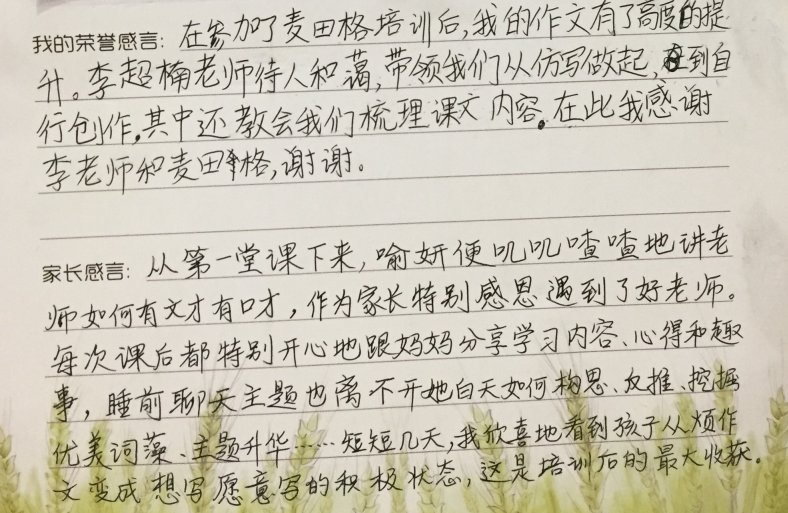 我的荣誉感言：在参加了麦田格培训后，我的作文有了高度的提
升。李超楠老师待人和蔼，带领我们从仿写做起，到自
行创作，其中还教会我们梳理课文内容。在此我感谢
李老师和麦田格，谢谢。
家长感言：从第一堂课下来，喻妍便叽叽喳喳地讲老
师如何有文才有口才，作为家长特别感恩遇到了好老师。
每次课后都特别开心地跟妈妈分享学习内容、心得和趣
事，睡前聊天主题也离不开她白天如何构思、反推、挖掘
优美词藻、主题升华……短短几天，我欣喜地看到孩子从烦作
文变成想写愿意写的积极状态，这是培训后的最大收获。